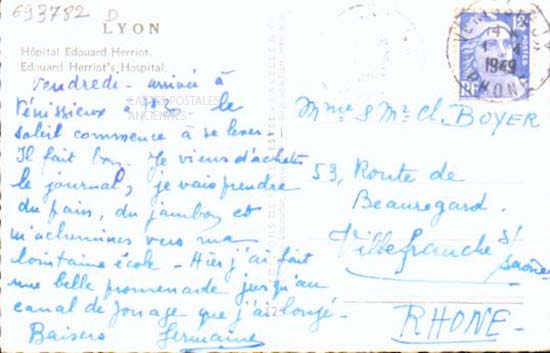 693782 D
LYON
Hôpital Edouard Herriot.
Edouard Herriot's Hospital.
Vendredi - arrivée à
Vénissieux à le
soleil commence à se lever.
Il fait bon. Je viens d'acheter
le journal, je vais prendre
du pain, du jambon et
m'achemines vers ma
lointaine école - Hier j'ai fait
une belle promenade jusqu'au
canal de Jonage que j'ai longé -
Baisers Germaine
CARTES POSTALES
ANCIENNES
VENISSIEUX
14
1 - 4
1949
RHONE
POSTES
RF
Mme & Mr Cl. BOYER
53, Route de
Beauregard.
Villefranche s/
Saône
RHONE -